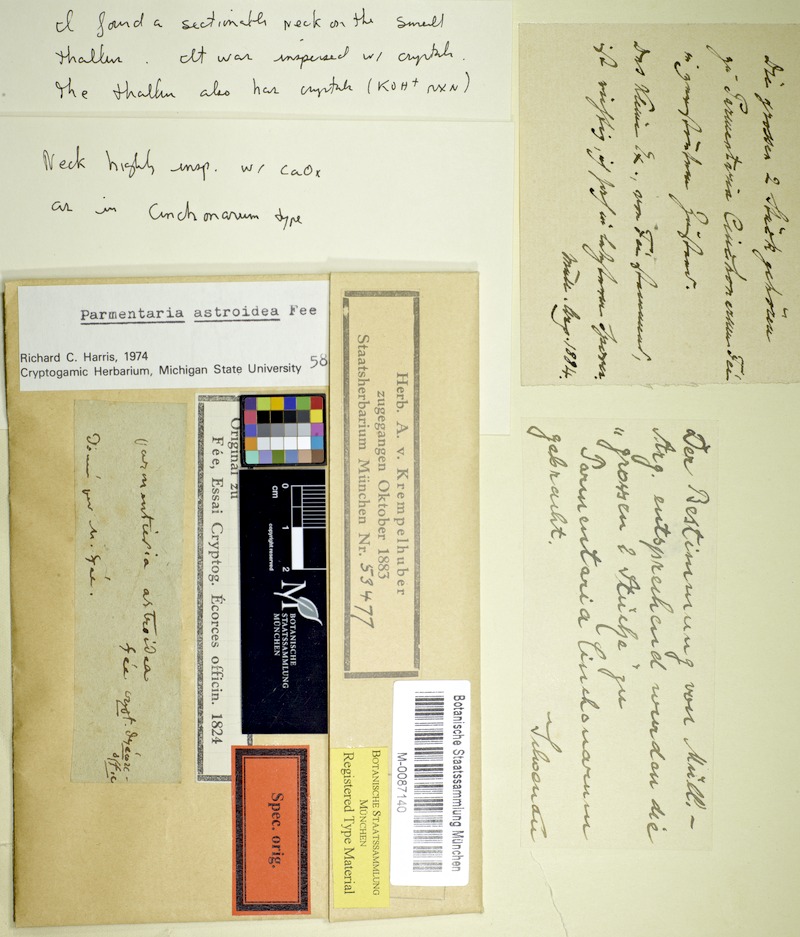 I found a sectionable neck on the small
thallus. It was inspersed w/ crystals.
The thallus also has crystals (KOH+ NXN)
Neck highly insp. w/ CaOx
as in Cinchonarum type
Parmentaria astroidea Fee
Richard C. Harris, 1974
Cryptogamic Herbarium, Michigan State University 58
parmentaria astroidea
fée crypt. d'écorc-
offic.
Donné par M. fée.
Original zu
Fée, Essai Cryptog. Écorces officin. 1824
0 1 2
cm
copyright reserved
M
BOTANISCHE
STAATSSAMMLUNG
MÜNCHEN
Spec. orig.
Herb. A. v. Krempelhuber
zugegangen Oktober 1883
Staatsherbarium München Nr. 53477
BOTANISCHE STAATSSAMMLUNG
MÜNCHEN
Registered Type Material
Botanische Staatssammlung München
M-0087140
Die grossen 2 Stück gehören
zu Parmentaria Cinchonarum Féé
in
Das kleine Ex., von Fée stammend,
ist richtig, ist
Müll. Arg. 1884.
Der Bestimmung von Müll.-
Arg. entsprechend wurden die
"grossen 2 Stücke" zu
Parmentaria Cinchonarum
gebracht.
Schoenau